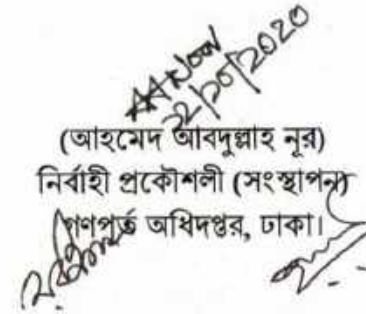 ২২/১০/২০২০
(আহমেদ আবদুল্লাহ নূর)
নির্বাহী প্রকৌশলী (সংস্থাপন)
গণপূর্ত অধিদপ্তর, ঢাকা।